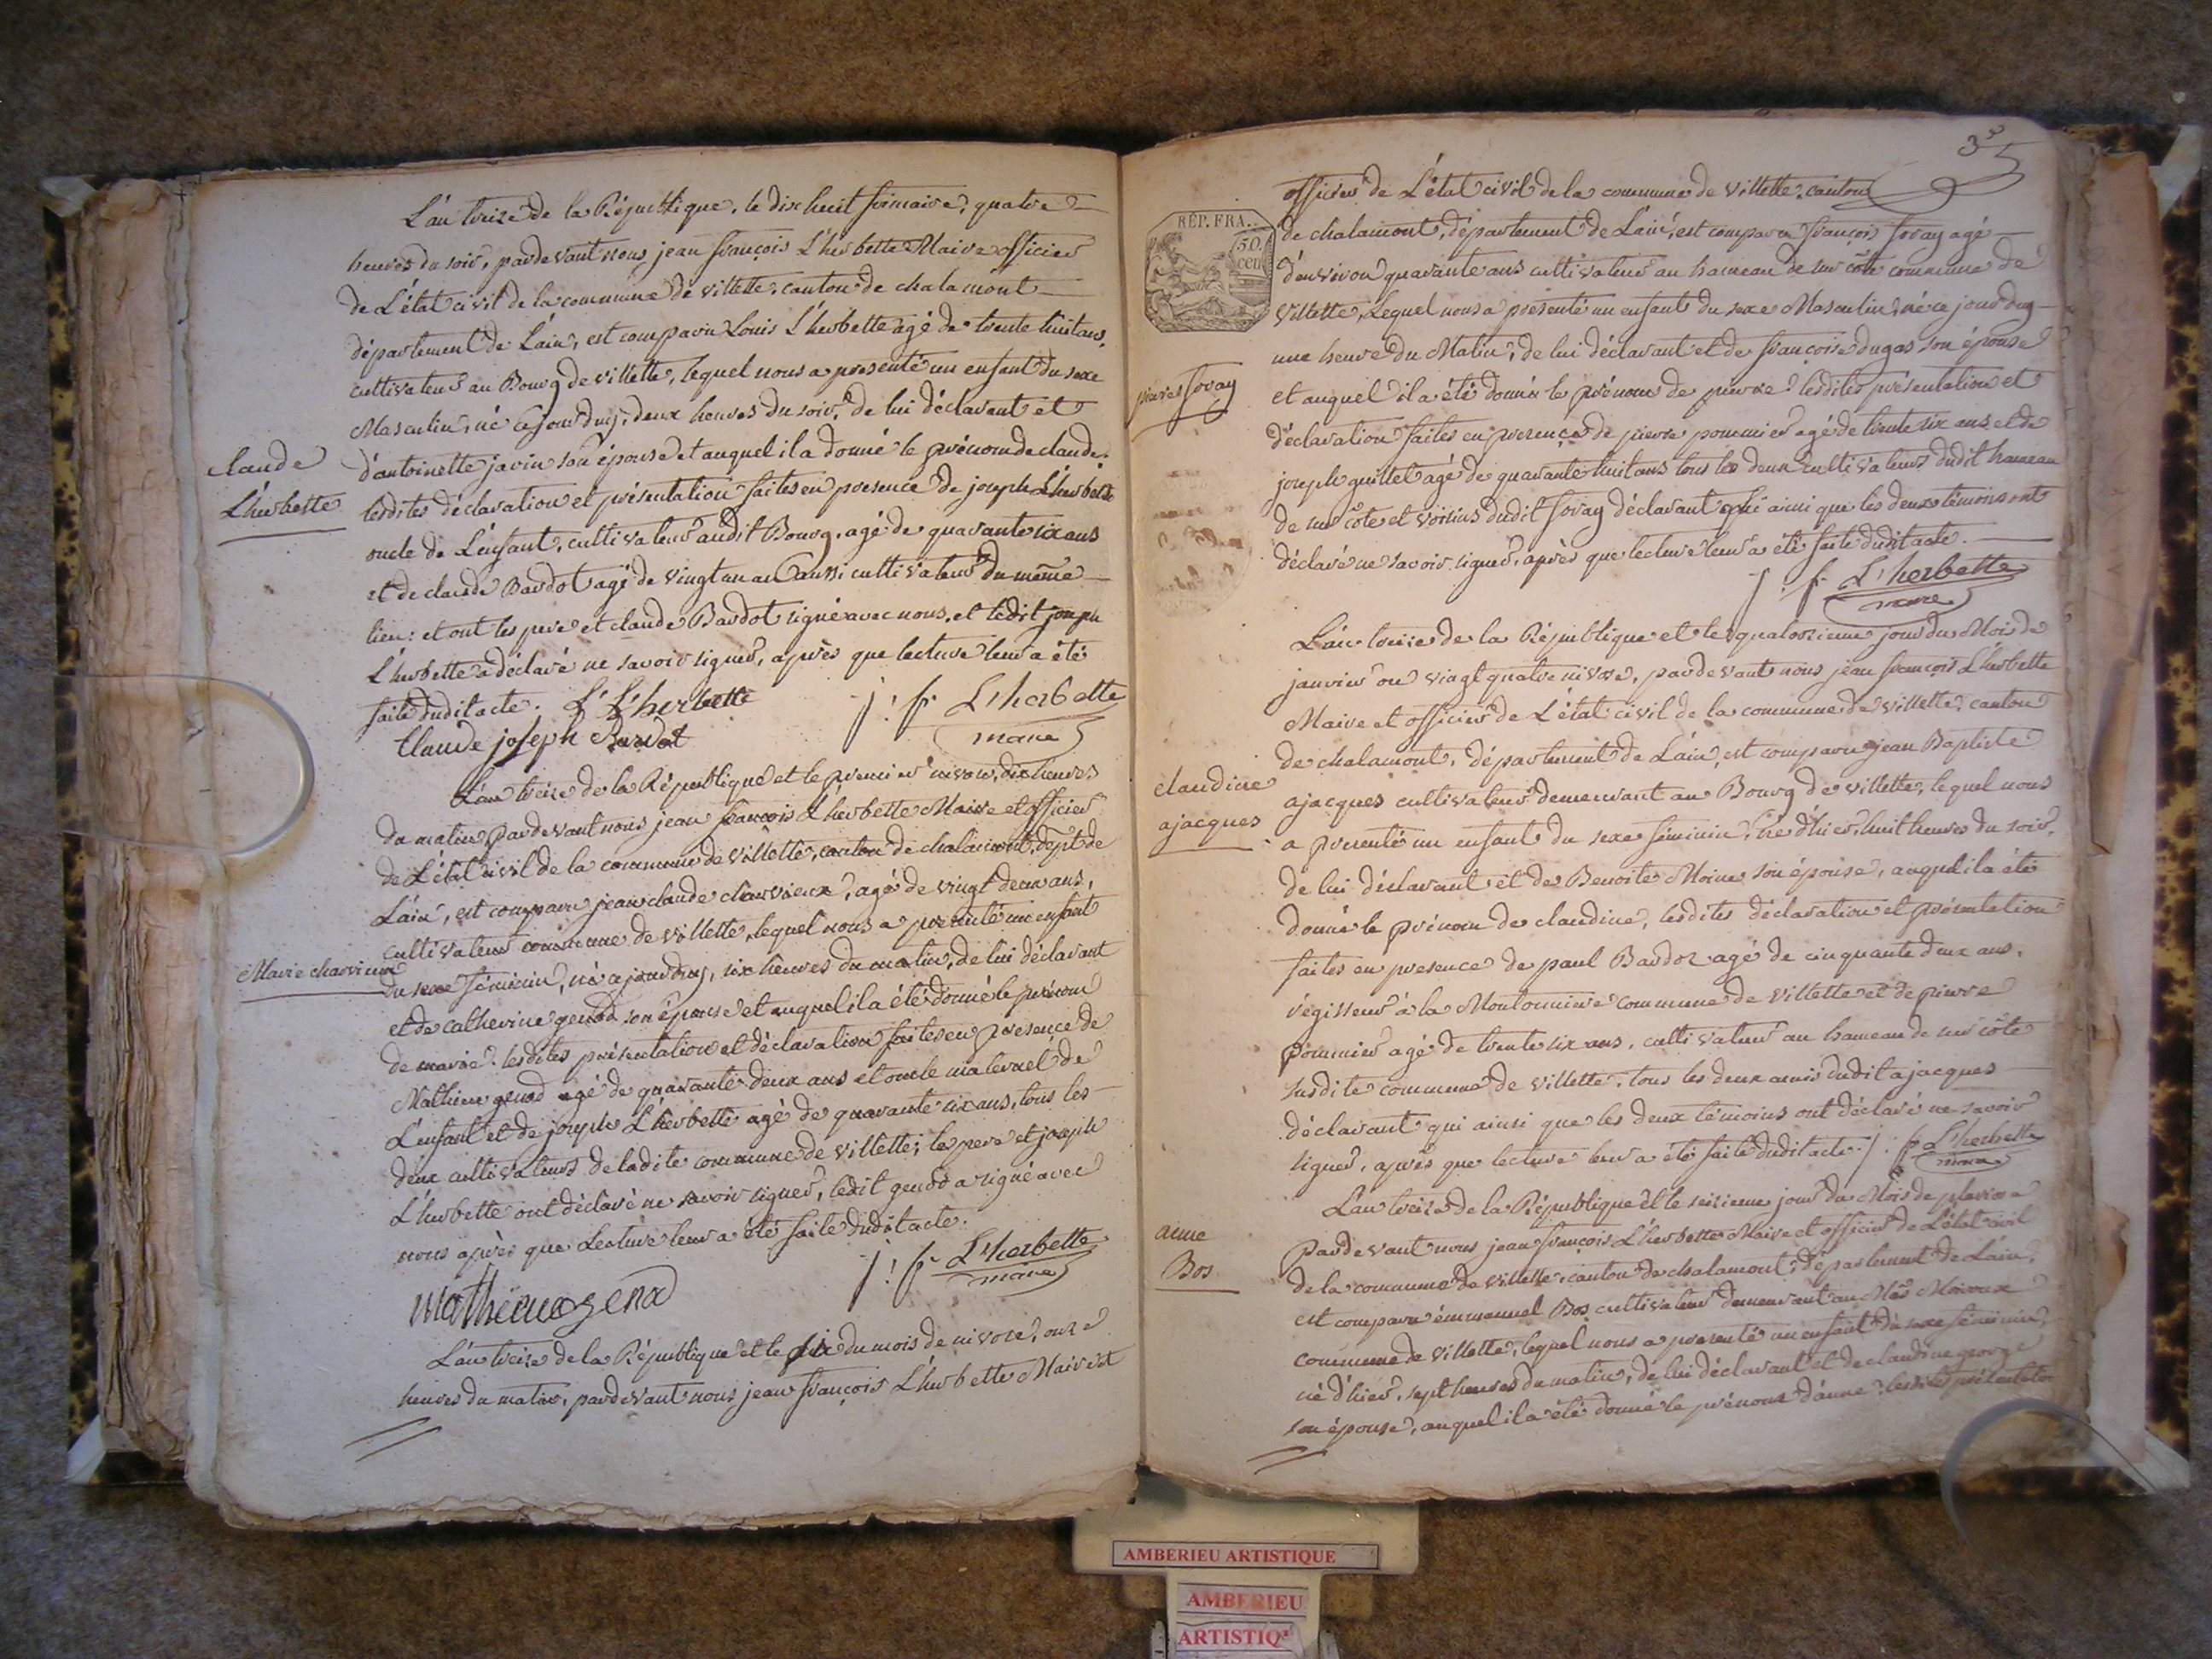 L'an treize de la République, le dix huit frimaire, quatre
heures du soir, pardevant nous jean françois L'herbette Maire officier
de L'état civil de la commune de villette, canton de chalamont
département de L'ain, est comparu Louis L'herbette agé de trente huit ans,
cultivateur au Bourg de villette, lequel nous a presenté un enfant du sexe
Masculin, né cejourduy, deux heures du soir, de lui déclarant et
claude
d'antoinette javin son épouse et auquel il a donné le prénom de claude.
L'herbette
lesdites déclaration et présentation faites en presence de joseph L'herbette
oncle de L'enfant, cultivateur audit Bourg, agé de quarante six ans
et de claude Bardot agé de vingt un an aussi cultivateur du même
lieu: et ont les pere et claude Bardot signé avec nous, et ledit joseph
L'herbette a déclaré ne savoir signer, après que lecture leur a été
faite dudit acte. L L'herbette
j: f L'herbette
Claude joseph Bardot
maire
L'an treize de la République et le premier nivose, dix heures
du matin, pardevant nous jean francois L'herbette Maire et officier
de L'état civil de la commune de villette, canton de chalamont, dept de
L'ain, est comparu jean claude charvieux, agé de vingt deux ans,
cultivateur commune de villette, lequel nous a presenté un enfant
Marie charvieux
du sexe féminin, né cejourduy, six heures du matin, de lui déclarant
et de catherine genod son épouse et auquel il a été donné le prénom
de marie. lesdites présentation et déclaration faites en presence de
Mathieu genod agé de quarante deux ans et oncle maternel de
L'enfant et de joseph L'herbette agé de quarante six ans, tous les
deux cultivateurs de ladite commune de villette; le pere et joseph
L'herbette ont déclaré ne savoir signer, ledit genod a signé avec
nous après que Lecture leur a été faite dudit acte.
j: f L'herbette
maire
L'an treize de la République et le dix du mois de nivose, onze
heures du matin, pardevant nous jean françois L'herbette Maire et
officier de L'état civil de la commune de villette, canton
RÉP. FRA.
50.
cen
de chalamont, département de L'ain, est comparu françois foray agé
d'environ quarante ans cultivateur au hameau de sur côte commune de
villette, Lequel nous a présenté un enfant du sexe Masculin, né ce jourduy
une heure du Matin, de lui déclarant et de francoise dugas son épouse
pierre foray
et auquel il a été donné le prénom de pierre. lesdites présentation et
déclaration faites en presence de pierre pommier agé de trente six ans et de
joseph guillet agé de quarante huit ans tous les deux cultivateurs dudit hameau
de sur côte et voisins dudit foray déclarant qui ainsi que les deux témoins ont
déclaré ne savoir signer, après que lecture leur a été faite dudit acte.
j: f L'herbette
maire
L'an treize de la République et le quatorzieme jour du Mois de
janvier ou vingt quatre nivose, pardevant nous jean françois L'herbette
Maire et officier de L'état civil de la commune de villette, canton
de chalamont, département de L'ain, est comparu jean Baptiste
claudine
ajacques cultivateur demeurant au Bourg de villette, lequel nous
ajacques
a presenté un enfant du sexe féminin, né d'hier, huit heures du soir,
de lui déclarant et de Benoite Moine son épouse, auquel il a été
donné le prénom de claudine, lesdites déclaration et présentation
faites en presence de paul Bardoz agé de cinquante deux ans,
régisseur à la Montonniere commune de villette et de pierre
pommier agé de trente six ans, cultivateur au hameau de sur côte
susdite commune de villette, tous les deux amis dudit ajacques
déclarant qui ainsi que les deux témoins ont déclaré ne savoir
signer, après que lecture leur a été faite dudit acte. j: f L'herbette
maire
L'an treize de la République et le seizieme jour du Mois de pluviose
anne
pardevant nous jean françois L'herbette Maire et officier de L'état civil
Bos
de la commune de villette, canton de chalamont, département de L'ain,
est comparu émmanuel Bos cultivateur demeurant au Mas
commune de villette, lequel nous a presenté un enfant du sexe féminin,
né d'hier, sept heures du matin, de lui déclarant et de claudine george
son épouse, auquel il a été donné le prénom d'anne, lesdites présentation
AMBERIEU ARTISTIQUE
AMBERIEU
ARTISTIQ